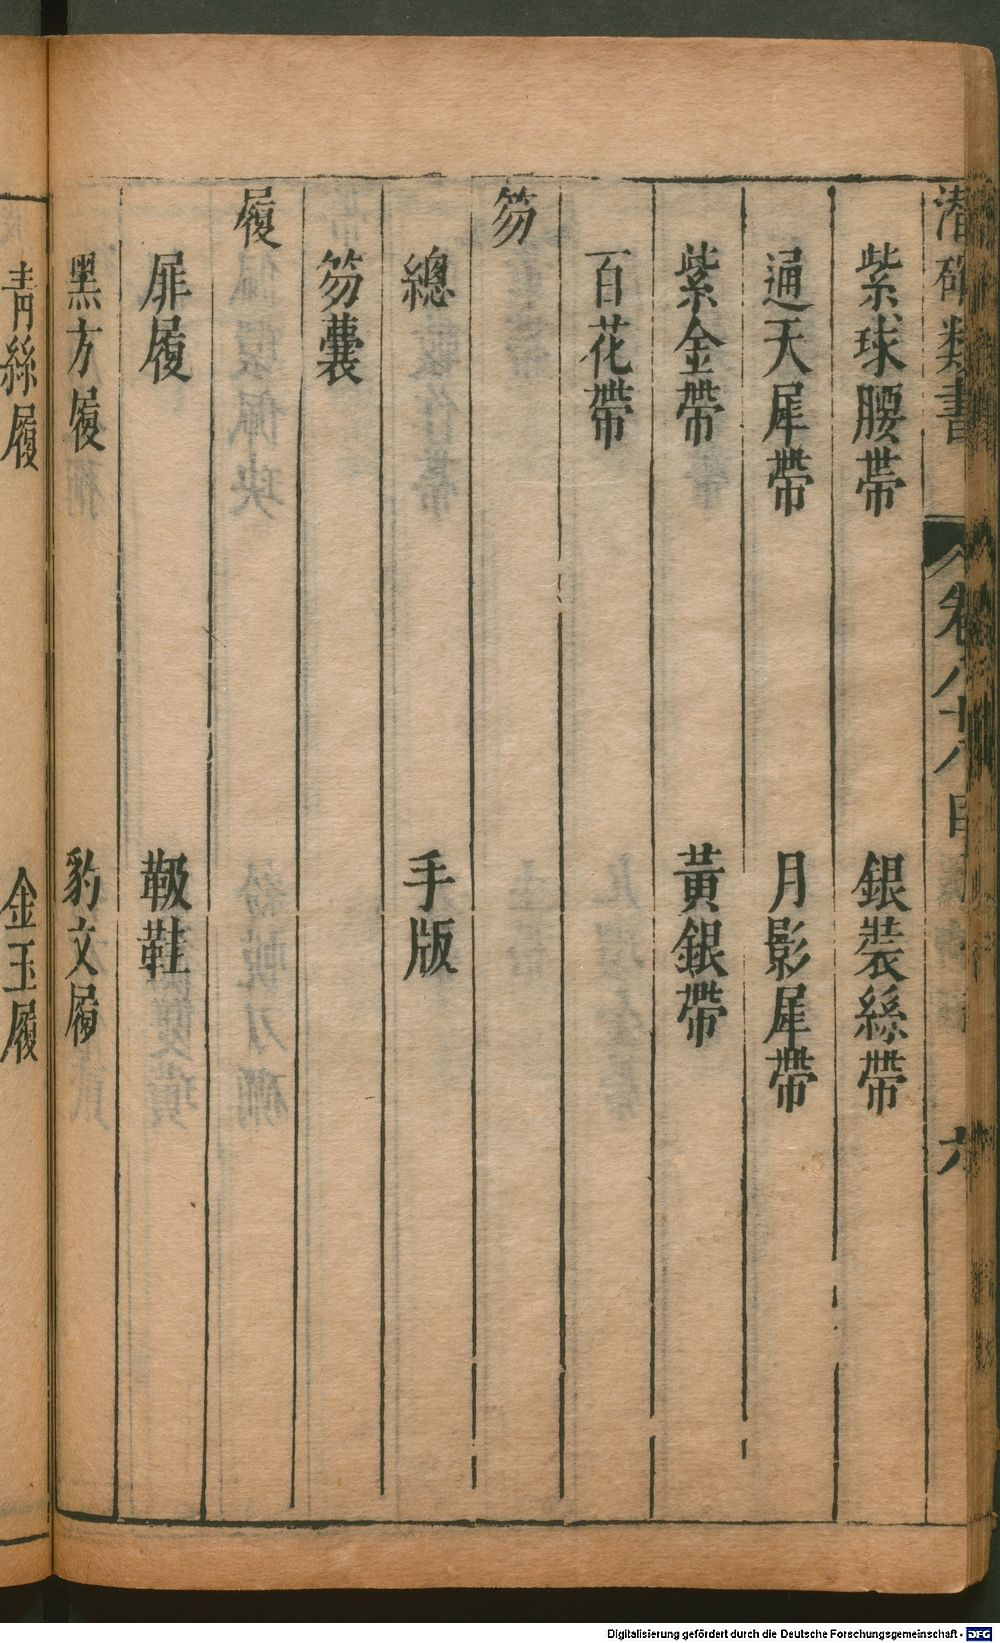 潛確類書 卷八十八目 六
紫球腰帶 銀裝絲帶
通天犀帶 月影犀帶
紫金帶 黃銀帶
百花帶
笏
總 手版
笏囊
履
扉履 靸鞋
黑方履 豹文履
青絲履 金玉履
Digitalisierung gefördert durch die Deutsche Forschungsgemeinschaft - DFG